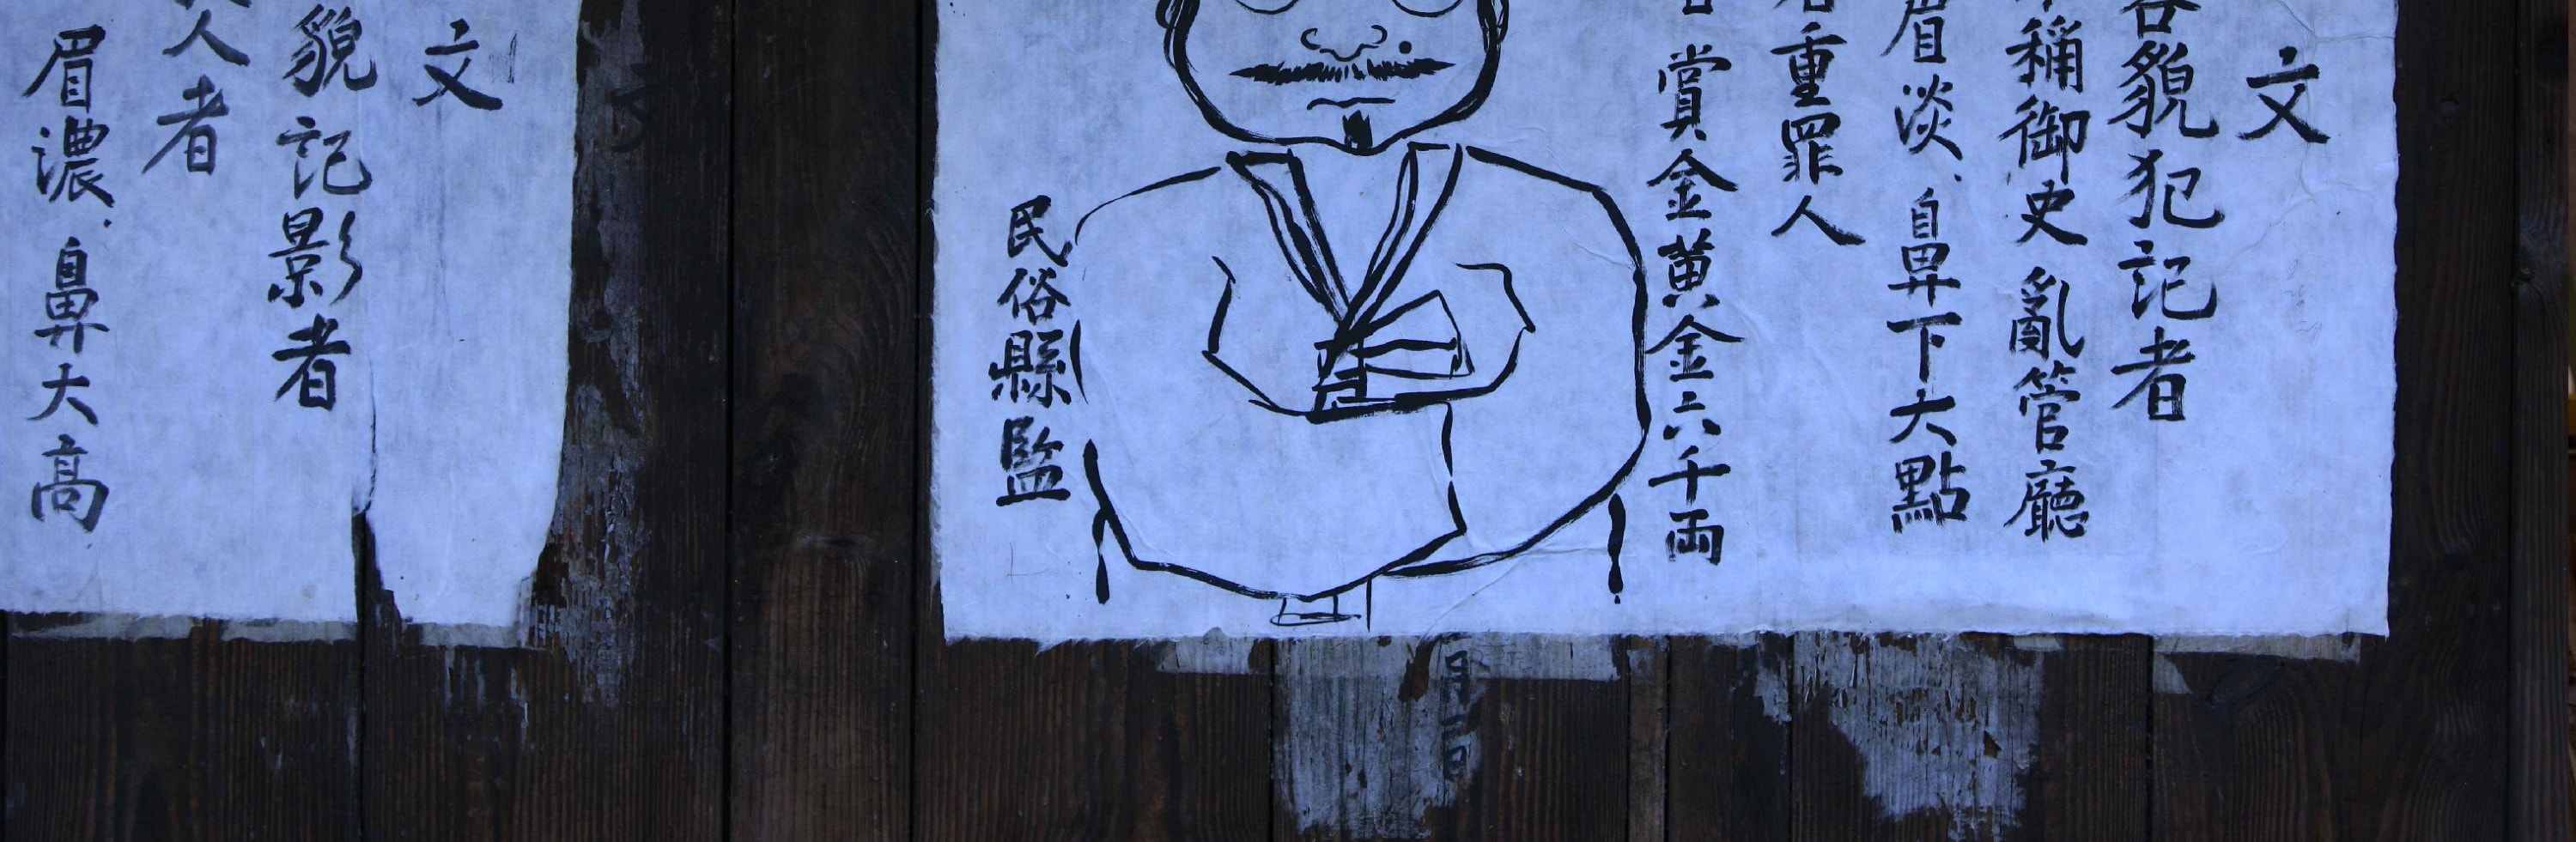 文
貌犯記者
稱御史亂管廳
眉淡、鼻下大點
重罪人
賞金黄金六千両
民俗縣監
文
貌記影者
人者
眉濃、鼻大高